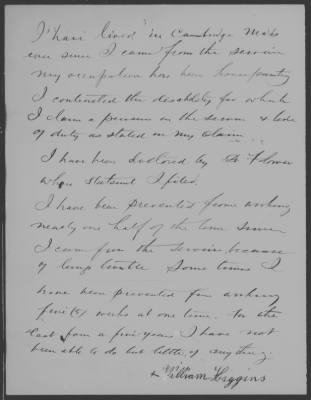 I have lived in Cambridge Mass
ever since I came from the service
my occupation has been house painting
I contracted the disability for which
I claim a pension in the service & line
of duty as stated in my claim
I have been doctored by Dr Flower
whose statement I filed.
I have been prevented from working
nearly one half of the time since
I came from the service because
of lung trouble Some times I
have been prevented from working
five (5) weeks at one time. for the
last four or five years I have not
been able to do but little, of any thing.
William Higgins